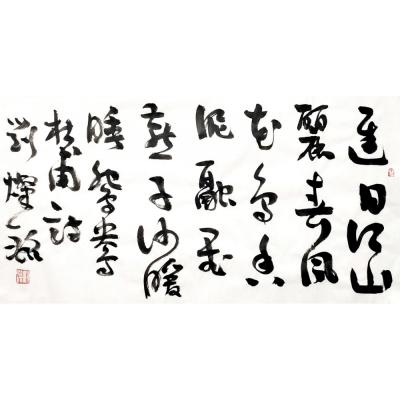 遲日江山
麗春風
花草香
泥融飛
燕子沙暖
睡鴛鴦
杜甫詩
劉燦銘